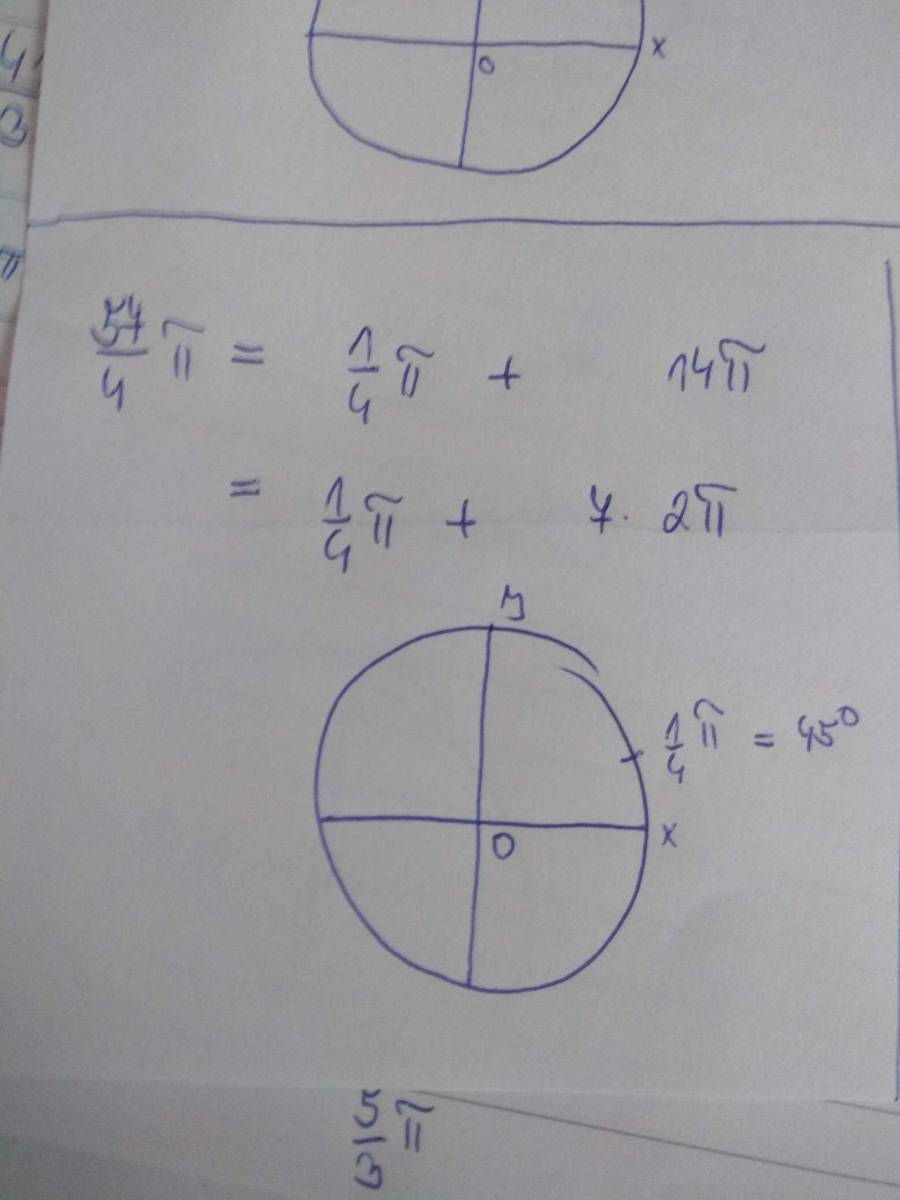 4
3
x
0
π
57/4 π = 1/4 π + 14π
= 1/4 π + 7 · 2π
y
1/4 π = 45°
0 x
5/3 π